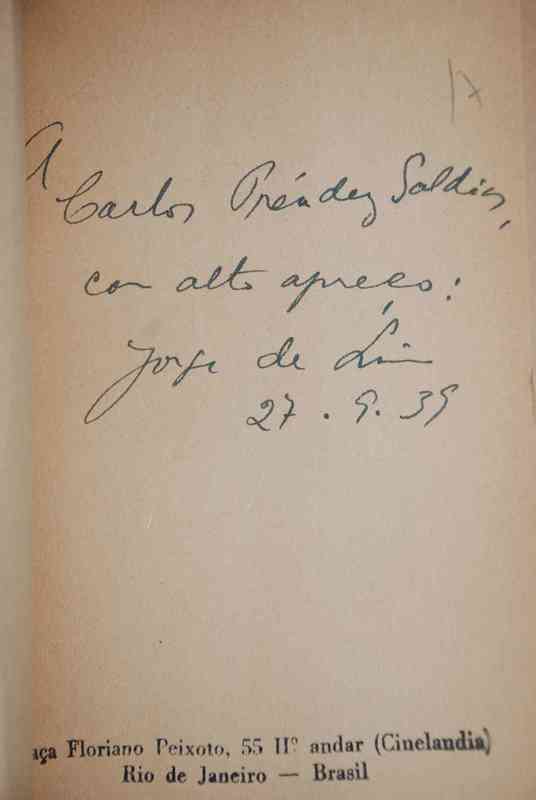 A
Carlos Préndez Saldias,
con alto aprecio:
Jorge de Lima
27.9.39
aça Floriano Peixoto, 55 IIº andar (Cinelandia)
Rio de Janeiro — Brasil